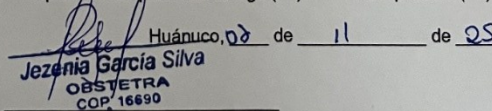 Huánuco, 08 de 11 de 25
Jezenia García Silva
OBSTETRA
COP. 16690